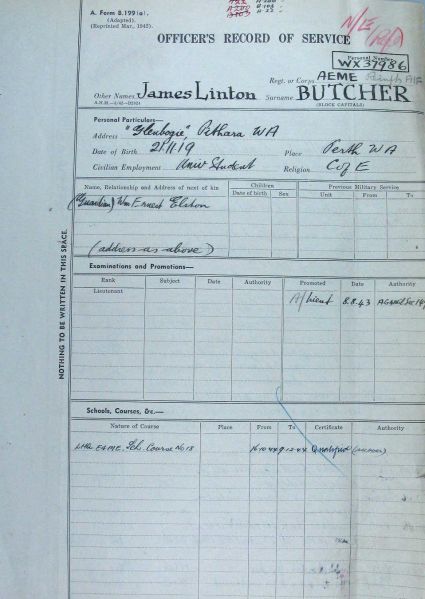 A. Form B.199(a).
(Adapted).
(Reprinted Mar., 1942).
OFFICER'S RECORD OF SERVICE
Personal Number
WX37986
Regt. or Corps AEME
Other Names James Linton Surname BUTCHER
(BLOCK CAPITALS)
Personal Particulars—
Address "Glenbogie", Pithara WA
Date of Birth 21/11/19 Place Perth WA
Civilian Employment Univ Student Religion C of E
Name, Relationship and Address of next of kin
Children
Previous Military Service
Date of birth Sex Unit From To
(Guardian) Wm Ernest
(address as above)
Examinations and Promotions—
Rank Subject Date Authority Promoted Date Authority
Lieutenant A/Lieut 8.8.43
Schools, Courses, &c.—
Nature of Course Place From To Certificate Authority
LHQ EAME Sch. Course No 18 16 10 44 9-12-44 Qualified
NOTHING TO BE WRITTEN IN THIS SPACE.